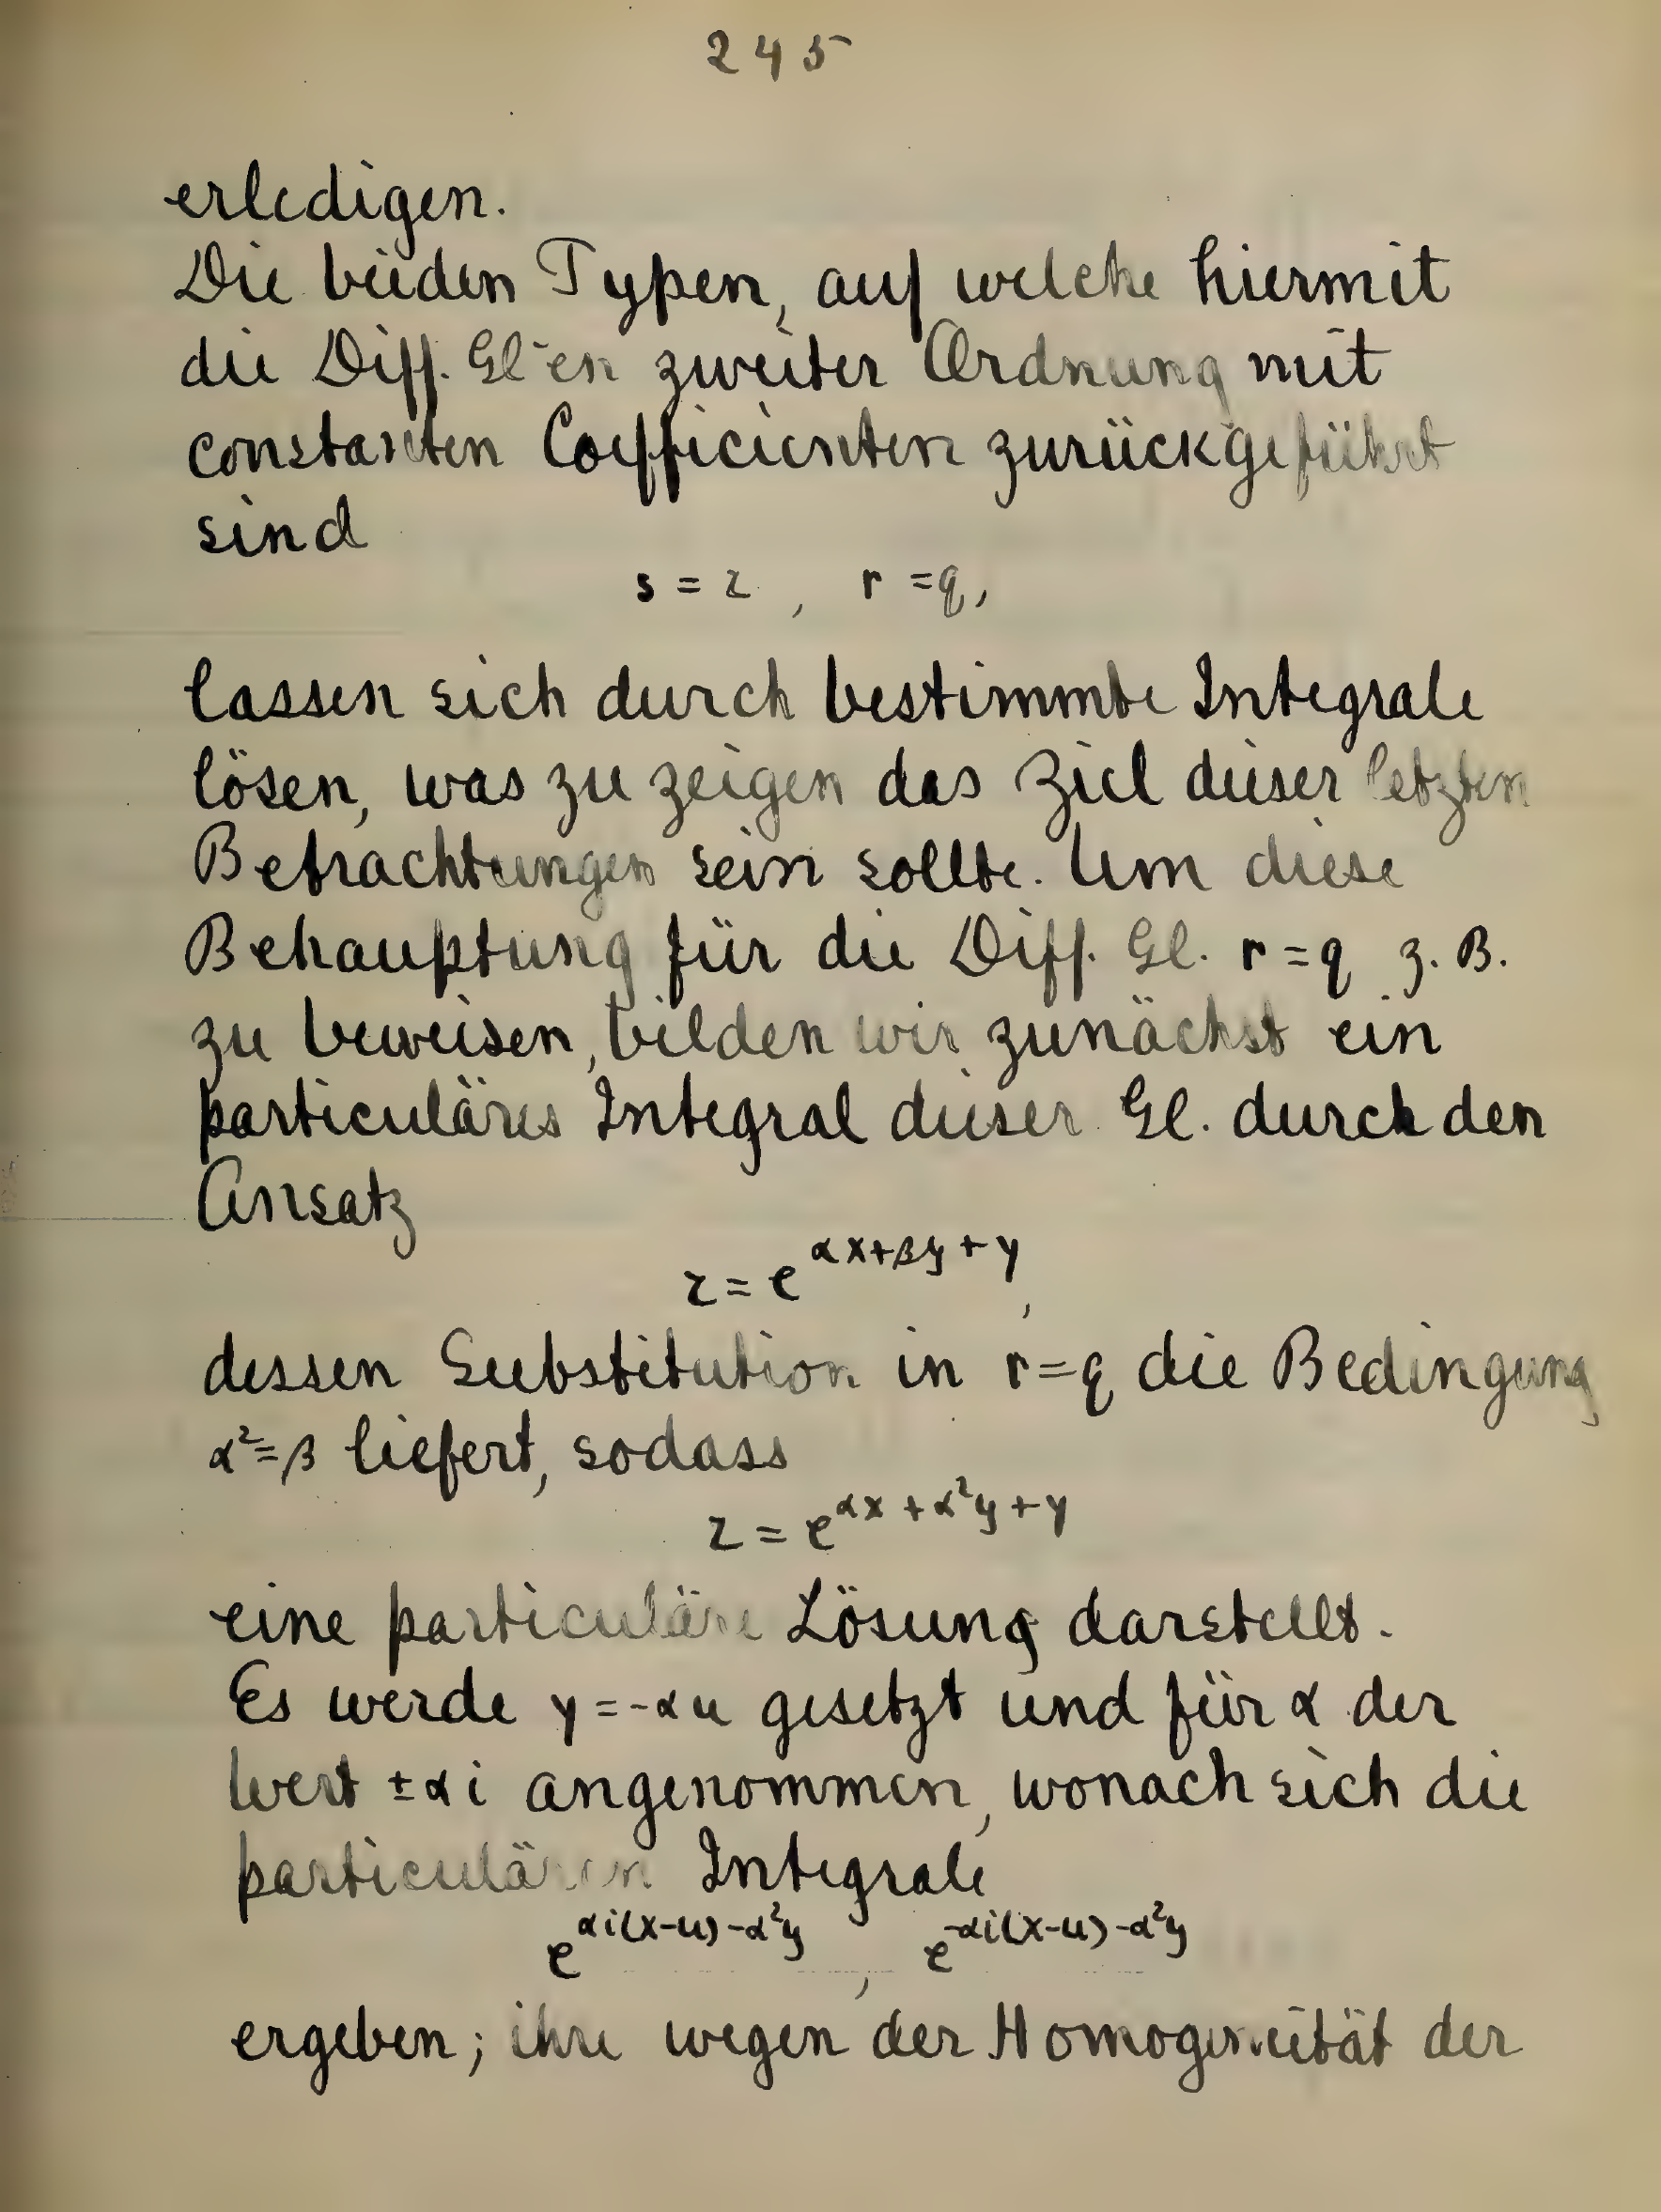 245
erledigen.
Die beiden Typen, auf welche hiermit
die Diff. Gl-en zweiter Ordnung mit
constanten Coefficienten zurückgeführt
sind
s = z , r = q,
lassen sich durch bestimmte Integrale
lösen, was zu zeigen das Ziel dieser letzten
Betrachtungen sein sollte. Um diese
Behauptung für die Diff. Gl. r = q z. B.
zu beweisen, bilden wir zunächst ein
particuläres Integral dieser Gl. durch den
Ansatz
z = e^{αx+βy+γ},
dessen Substitution in r = q die Bedingung
α² = β liefert, sodass
z = e^{αx+α²y+γ}
eine particuläre Lösung darstellt.
Es werde γ = -αu gesetzt und für α der
Wert ±αi angenommen, wonach sich die
particulären Integrale
e^{αi(x-u)-α²y} , e^{-αi(x-u)-α²y}
ergeben; ihre wegen der Homogeneität der